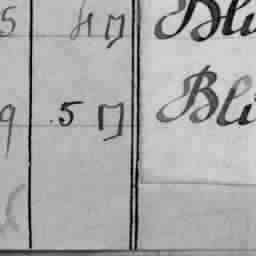 5 4 П Bli
9 .5 П Bli